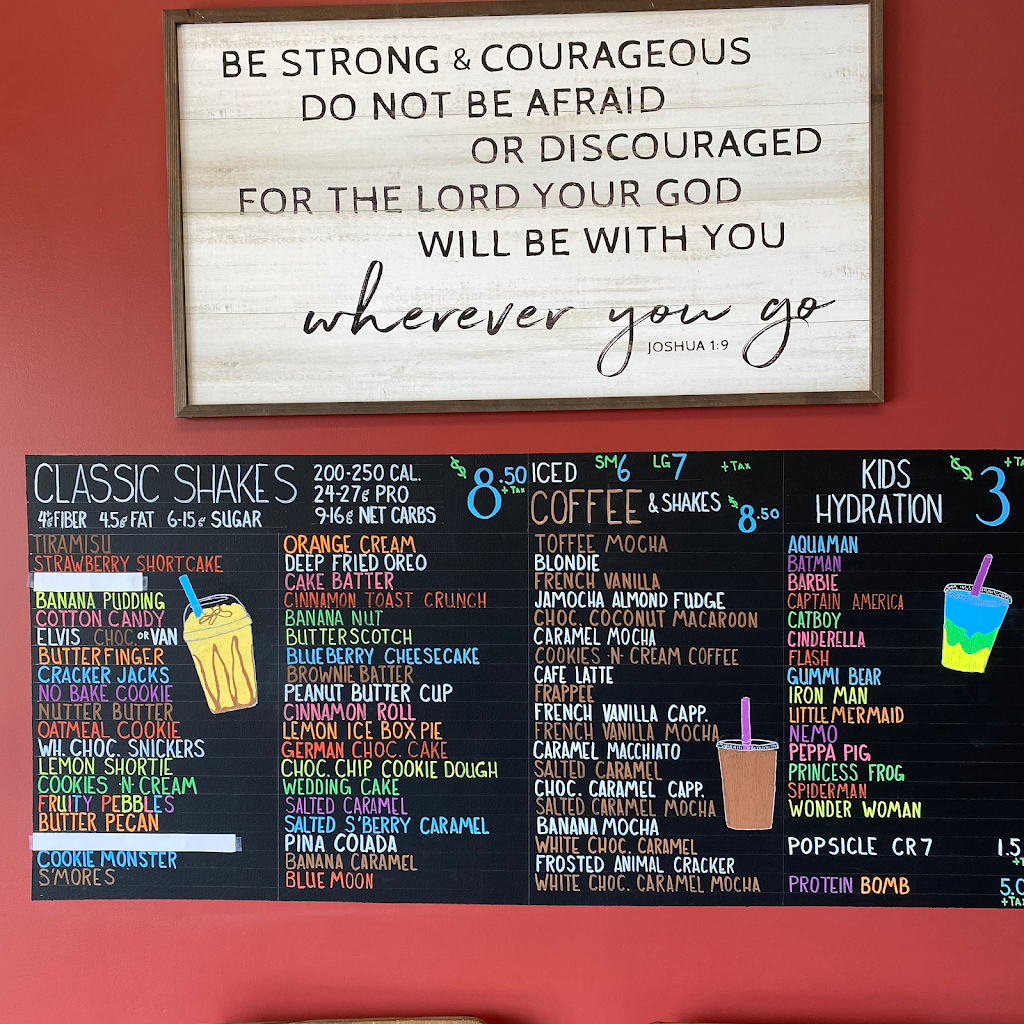 BE STRONG & COURAGEOUS
DO NOT BE AFRAID
OR DISCOURAGED
FOR THE LORD YOUR GOD
WILL BE WITH YOU
wherever you go
JOSHUA 1:9
CLASSIC SHAKES
4g FIBER 4.5g FAT 6-15g SUGAR
200-250 CAL.
24-27g PRO
9-16g NET CARBS
$8.50
+TAX
TIRAMISU
STRAWBERRY SHORTCAKE
BANANA PUDDING
COTTON CANDY
ELVIS CHOC. OR VAN
BUTTERFINGER
CRACKER JACKS
NO BAKE COOKIE
NUTTER BUTTER
OATMEAL COOKIE
WH. CHOC. SNICKERS
LEMON SHORTIE
COOKIES -N- CREAM
FRUITY PEBBLES
BUTTER PECAN
COOKIE MONSTER
S'MORES
ORANGE CREAM
DEEP FRIED OREO
CAKE BATTER
CINNAMON TOAST CRUNCH
BANANA NUT
BUTTERSCOTCH
BLUEBERRY CHEESECAKE
BROWNIE BATTER
PEANUT BUTTER CUP
CINNAMON ROLL
LEMON ICE BOX PIE
GERMAN CHOC. CAKE
CHOC. CHIP COOKIE DOUGH
WEDDING CAKE
SALTED CARAMEL
SALTED S'BERRY CARAMEL
PINA COLADA
BANANA CARAMEL
BLUE MOON
ICED SM 6 LG 7 +TAX
COFFEE & SHAKES $8.50
TOFFEE MOCHA
BLONDIE
FRENCH VANILLA
JAMOCHA ALMOND FUDGE
CHOC. COCONUT MACAROON
CARAMEL MOCHA
COOKIES -N- CREAM COFFEE
CAFE LATTE
FRAPPEE
FRENCH VANILLA CAPP.
FRENCH VANILLA MOCHA
CARAMEL MACCHIATO
SALTED CARAMEL
CHOC. CARAMEL CAPP.
SALTED CARAMEL MOCHA
BANANA MOCHA
WHITE CHOC. CARAMEL
FROSTED ANIMAL CRACKER
WHITE CHOC. CARAMEL MOCHA
KIDS
HYDRATION
$3
+TAX
AQUAMAN
BATMAN
BARBIE
CAPTAIN AMERICA
CATBOY
CINDERELLA
FLASH
GUMMI BEAR
IRON MAN
LITTLE MERMAID
NEMO
PEPPA PIG
PRINCESS FROG
SPIDERMAN
WONDER WOMAN
POPSICLE CR7 1.5
PROTEIN BOMB 5.0
+TAX